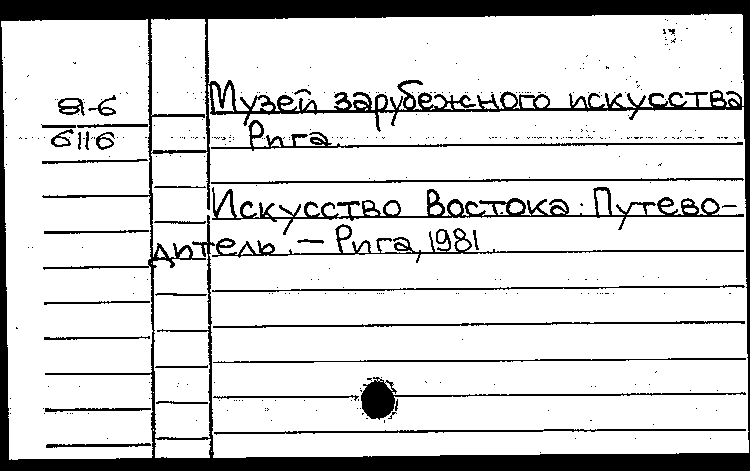 Музей зарубежного искусства
Рига.
Искусство Востока: Путево-
дитель. — Рига, 1981.
6116